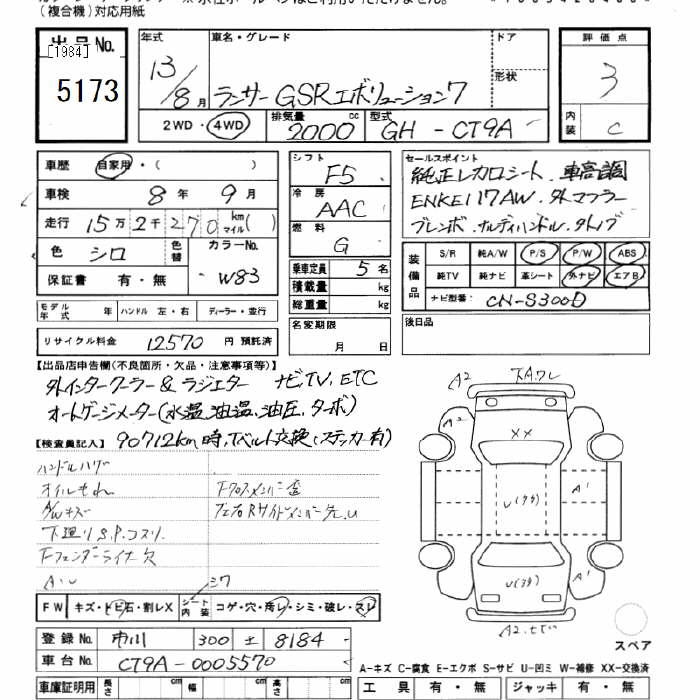 (複合機)対応用紙
出品No.
[1984]
5173
年式
13/8月
車名・グレード
ランサー GSRエボリューション7
ドア
形状
2WD・4WD
排気量
2000 cc
型式
GH - CT9A
評価点
3
内装
C
車歴 自家用・( )
車検 8年 9月
走行 15万2千270 km マイル( )
色 シロ 色替
カラーNo. W83
保証書 有・無
シフト F5
冷房 AAC
燃料 G
乗車定員 5名
積載量 kg
総重量 kg
名変期限 月 日
セールスポイント
純正レカロシート、車高調
ENKEI17AW、外マフラー
ブレンボ、ナルディハンドル、外ノブ
装備品
S/R 純A/W P/S P/W ABS
純TV 純ナビ 革シート 外ナビ エアB
ナビ型番: CN-S300D
後日品
モデル年式 年 ハンドル 左・右 ディーラー・並行
リサイクル料金 12570 円 預託済
【出品店申告欄(不良箇所・欠品・注意事項等)】
外インタークーラー&ラジエター ナビTV、ETC
オートゲージメーター(水温、油温、油圧、ターボ)
【検査員記入】 90712km時、Tベルト交換(ステッカー有)
ハンドルハゲ
オイルもれ
A/Wキズ
下廻りS.P.コスリ
Fフェンダーライナ欠
Fクロスメンバー歪
シワ
FW キズ・トビ石・割レX
シート内装 コゲ・穴・汚レ・シミ・破レ・スレ
登録No. 市川 300 8184
車台No. CT9A-0005570
車庫証明用 長さ cm 幅 cm 高さ cm
A2
A2
XX
A1
A1
スペア
A-キズ C-腐食 E-エクボ S-サビ U-凹ミ W-補修 XX-交換済
工具 有・無 ジャッキ 有・無